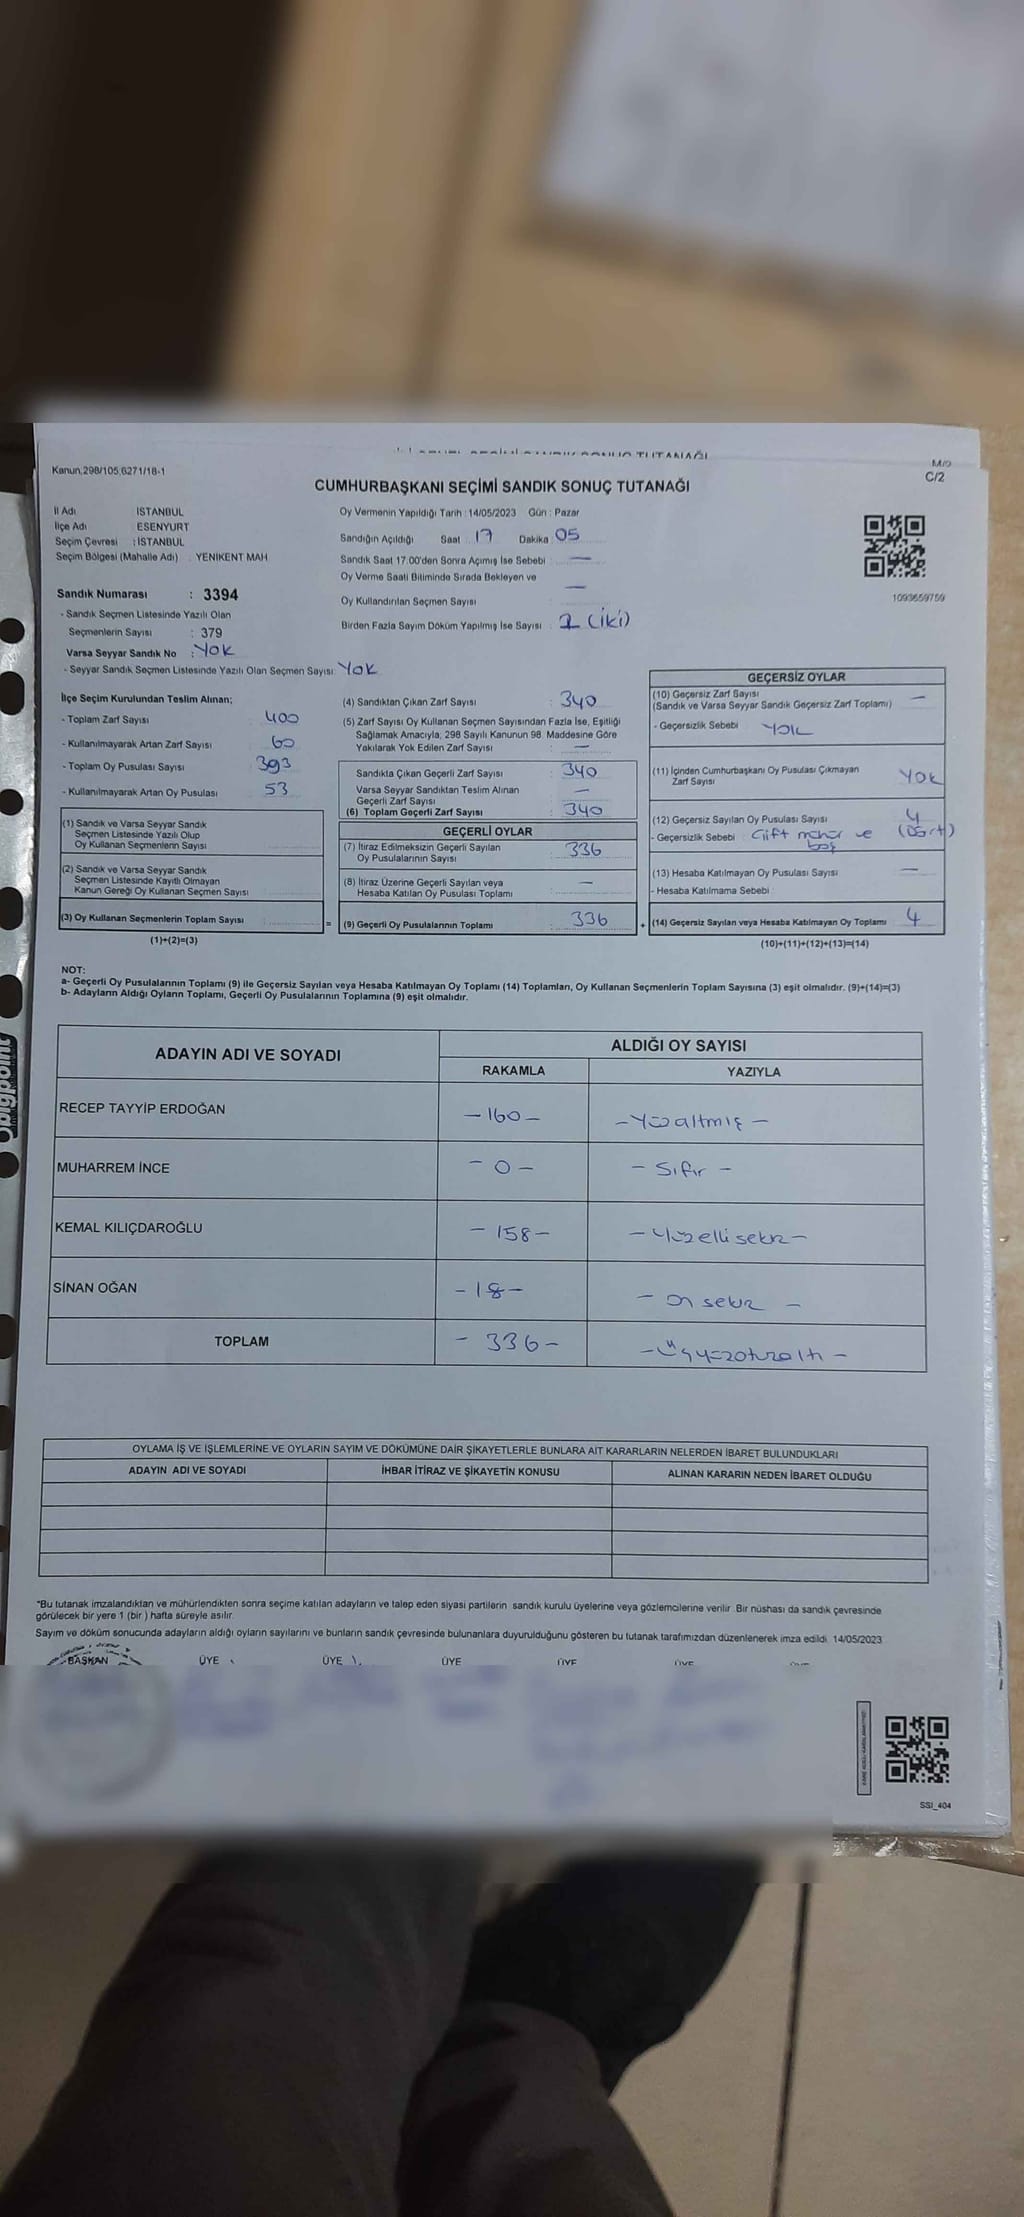 Kanun;298/105;6271/18-1
C/2
CUMHURBAŞKANI SEÇİMİ SANDIK SONUÇ TUTANAĞI
İl Adı İSTANBUL
İlçe Adı ESENYURT
Seçim Çevresi : İSTANBUL
Seçim Bölgesi (Mahalle Adı) : YENİKENT MAH
Sandık Numarası : 3394
- Sandık Seçmen Listesinde Yazılı Olan
Seçmenlerin Sayısı : 379
Varsa Seyyar Sandık No : YOK
- Seyyar Sandık Seçmen Listesinde Yazılı Olan Seçmen Sayısı: YOK
Oy Vermenin Yapıldığı Tarih : 14/05/2023 Gün : Pazar
Sandığın Açıldığı Saat 17 Dakika 05
Sandık Saat 17.00'den Sonra Açımış İse Sebebi : —
Oy Verme Saati Bitiminde Sırada Bekleyen ve
Oy Kullandırılan Seçmen Sayısı —
Birden Fazla Sayım Döküm Yapılmış İse Sayısı : 2 (iki)
1093659759
İlçe Seçim Kurulundan Teslim Alınan;
- Toplam Zarf Sayısı 400
- Kullanılmayarak Artan Zarf Sayısı 60
- Toplam Oy Pusulası Sayısı 393
- Kullanılmayarak Artan Oy Pusulası 53
(1) Sandık ve Varsa Seyyar Sandık
Seçmen Listesinde Yazılı Olup
Oy Kullanan Seçmenlerin Sayısı
(2) Sandık ve Varsa Seyyar Sandık
Seçmen Listesinde Kayıtlı Olmayan
Kanun Gereği Oy Kullanan Seçmen Sayısı
(3) Oy Kullanan Seçmenlerin Toplam Sayısı
(1)+(2)=(3)
(4) Sandıktan Çıkan Zarf Sayısı : 340
(5) Zarf Sayısı Oy Kullanan Seçmen Sayısından Fazla İse, Eşitliği
Sağlamak Amacıyla, 298 Sayılı Kanunun 98. Maddesine Göre
Yakılarak Yok Edilen Zarf Sayısı : —
Sandıkta Çıkan Geçerli Zarf Sayısı : 340
Varsa Seyyar Sandıktan Teslim Alınan
Geçerli Zarf Sayısı —
(6) Toplam Geçerli Zarf Sayısı : 340
GEÇERLİ OYLAR
(7) İtiraz Edilmeksizin Geçerli Sayılan
Oy Pusulalarının Sayısı : 336
(8) İtiraz Üzerine Geçerli Sayılan veya
Hesaba Katılan Oy Pusulası Toplamı : —
= (9) Geçerli Oy Pusulalarının Toplamı : 336
GEÇERSİZ OYLAR
(10) Geçersiz Zarf Sayısı
(Sandık ve Varsa Seyyar Sandık Geçersiz Zarf Toplamı) —
- Geçersizlik Sebebi : YOK
(11) İçinden Cumhurbaşkanı Oy Pusulası Çıkmayan
Zarf Sayısı YOK
(12) Geçersiz Sayılan Oy Pusulası Sayısı 4
- Geçersizlik Sebebi : Çift mühür ve (Dört)
boş
(13) Hesaba Katılmayan Oy Pusulası Sayısı —
- Hesaba Katılmama Sebebi :
+ (14) Geçersiz Sayılan veya Hesaba Katılmayan Oy Toplamı 4
(10)+(11)+(12)+(13)=(14)
NOT:
a- Geçerli Oy Pusulalarının Toplamı (9) ile Geçersiz Sayılan veya Hesaba Katılmayan Oy Toplamı (14) Toplamları, Oy Kullanan Seçmenlerin Toplam Sayısına (3) eşit olmalıdır. (9)+(14)=(3)
b- Adayların Aldığı Oyların Toplamı, Geçerli Oy Pusulalarının Toplamına (9) eşit olmalıdır.
ADAYIN ADI VE SOYADI
ALDIĞI OY SAYISI
RAKAMLA YAZIYLA
RECEP TAYYİP ERDOĞAN -160- -Yüzaltmış-
MUHARREM İNCE -0- -Sıfır-
KEMAL KILIÇDAROĞLU -158- -Yüzellisekiz-
SİNAN OĞAN -18- -On sekiz-
TOPLAM -336- -Üçyüzotuzaltı-
OYLAMA İŞ VE İŞLEMLERİNE VE OYLARIN SAYIM VE DÖKÜMÜNE DAİR ŞİKAYETLERLE BUNLARA AİT KARARLARIN NELERDEN İBARET BULUNDUKLARI
ADAYIN ADI VE SOYADI İHBAR İTİRAZ VE ŞİKAYETİN KONUSU ALINAN KARARIN NEDEN İBARET OLDUĞU
*Bu tutanak imzalandıktan ve mühürlendikten sonra seçime katılan adayların ve talep eden siyasi partilerin sandık kurulu üyelerine veya gözlemcilerine verilir. Bir nüshası da sandık çevresinde
görülecek bir yere 1 (bir ) hafta süreyle asılır.
Sayım ve döküm sonucunda adayların aldığı oyların sayılarını ve bunların sandık çevresinde bulunanlara duyurulduğunu gösteren bu tutanak tarafımızdan düzenlenerek imza edildi. 14/05/2023
BAŞKAN ÜYE ÜYE ÜYE ÜYE ÜYE
SSI_404
bigpoint